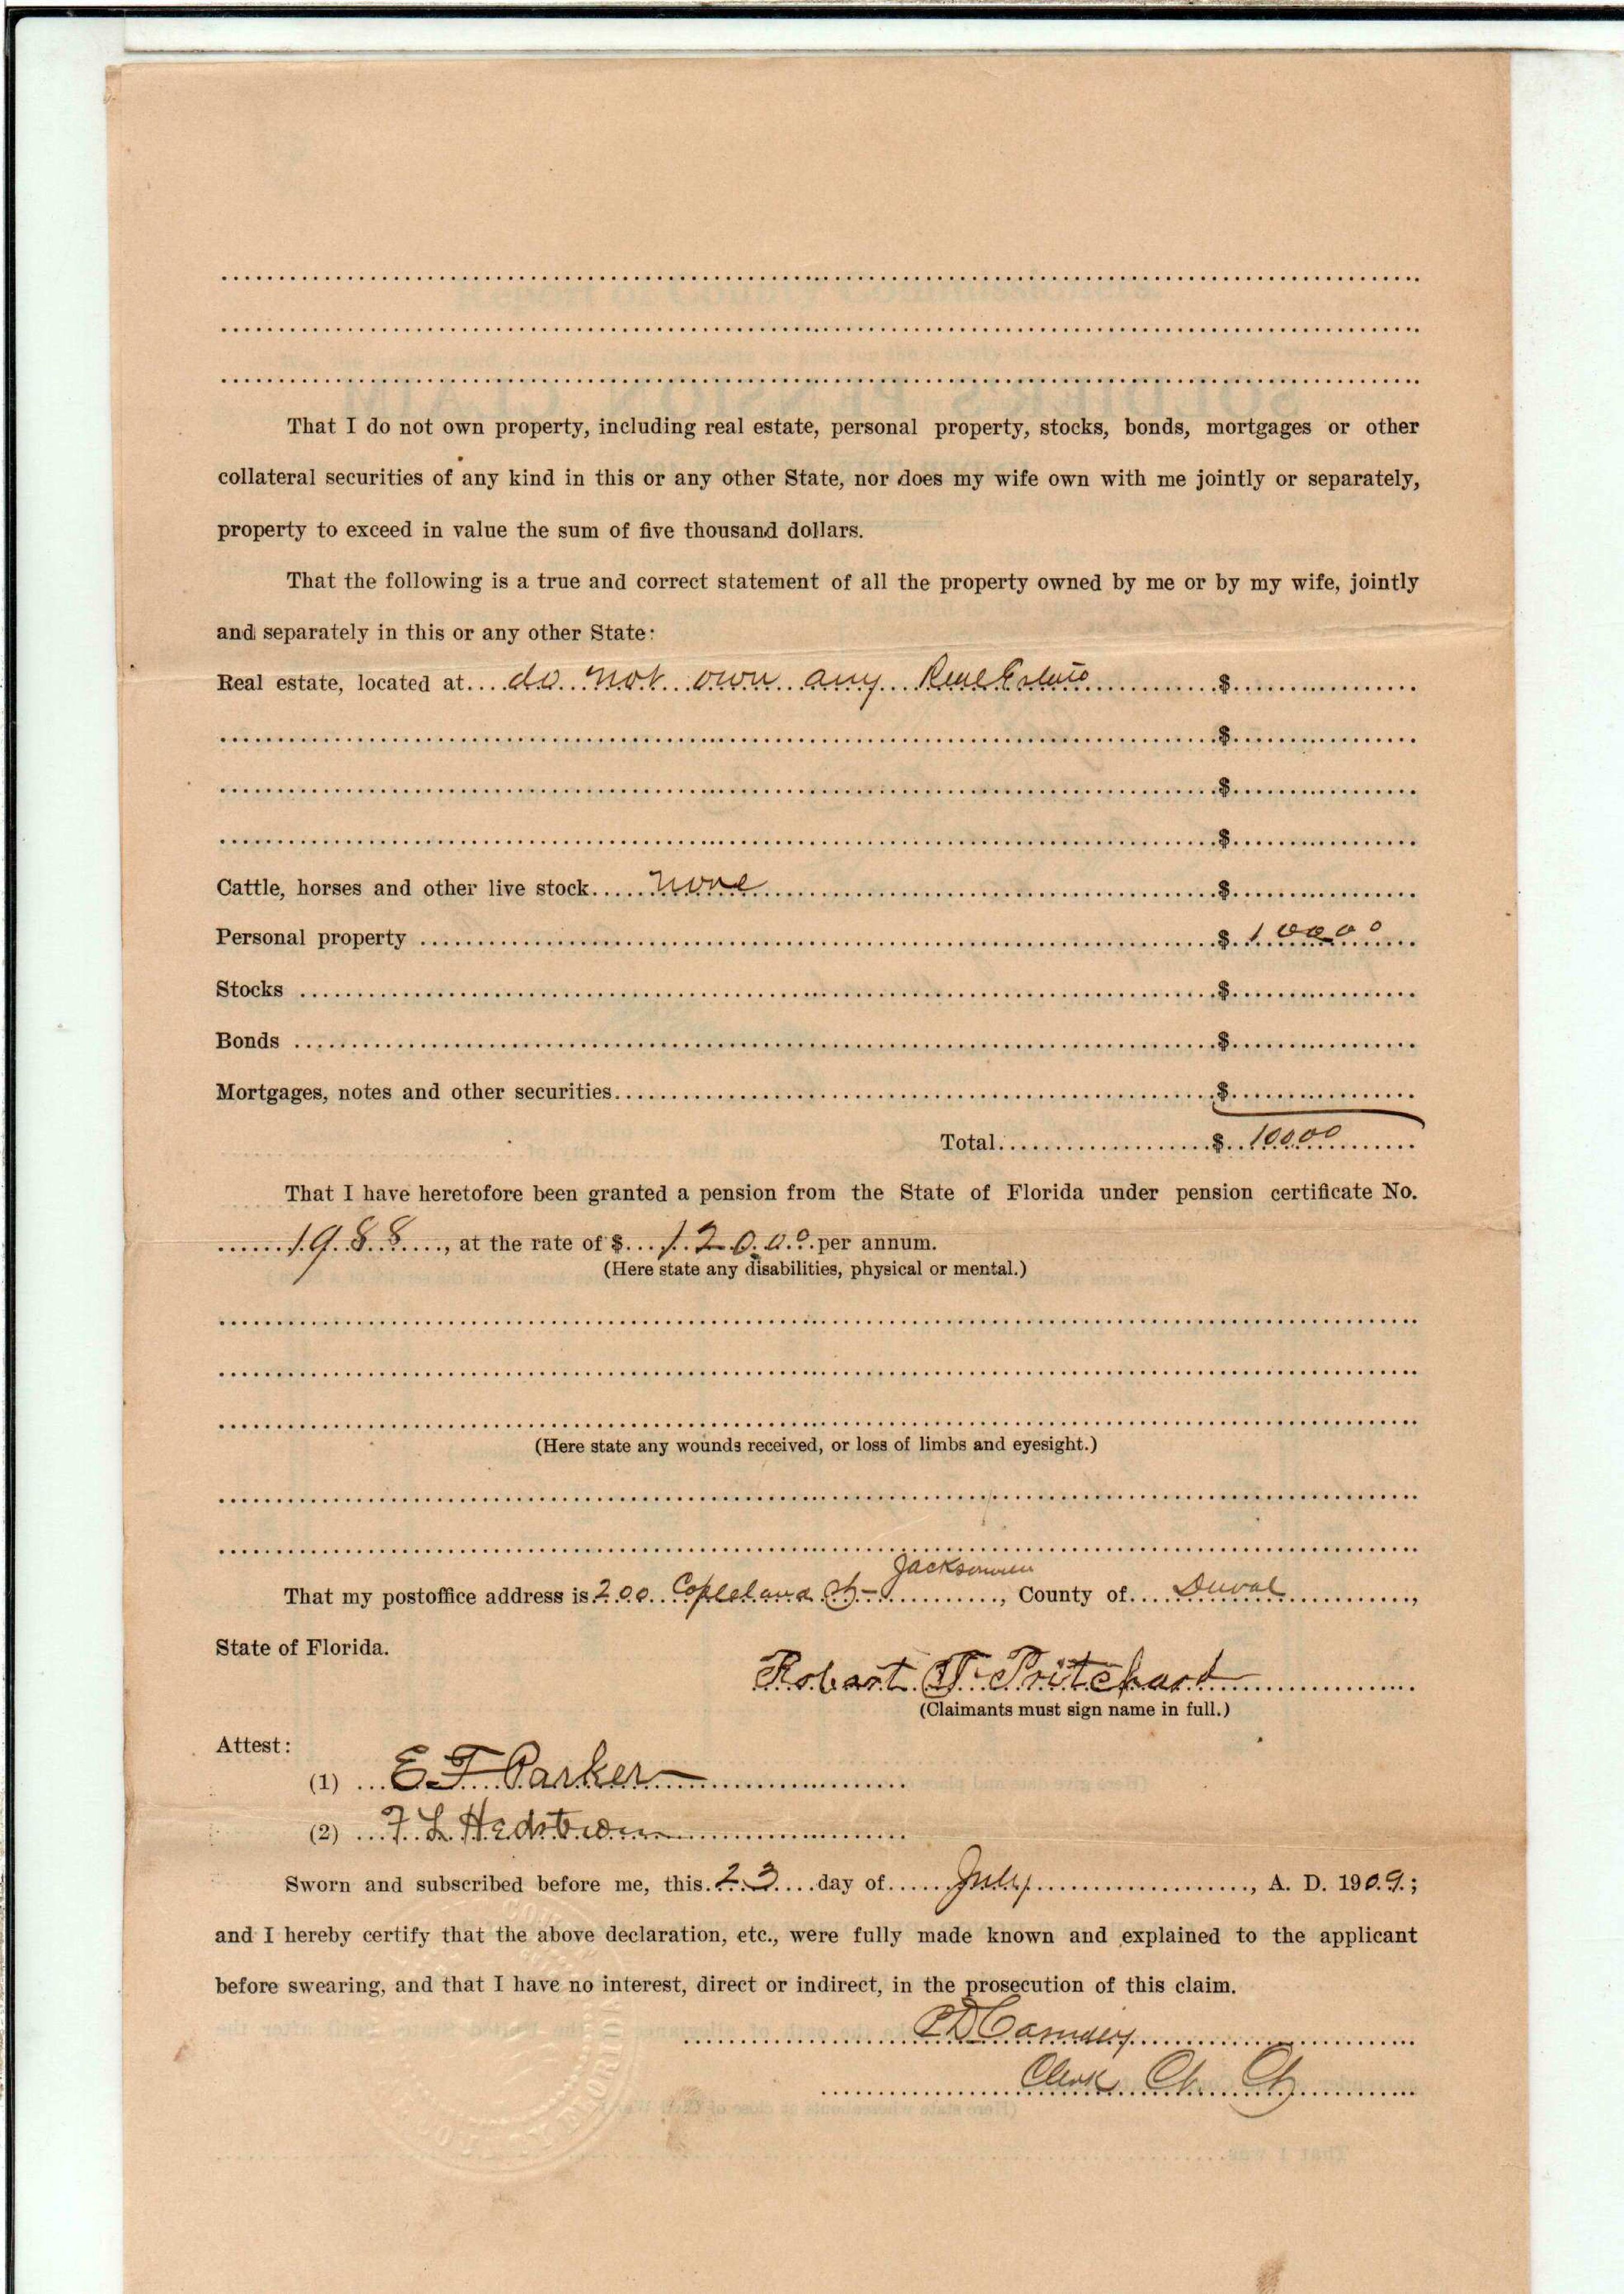 That I do not own property, including real estate, personal property, stocks, bonds, mortgages or other
collateral securities of any kind in this or any other State, nor does my wife own with me jointly or separately,
property to exceed in value the sum of five thousand dollars.
That the following is a true and correct statement of all the property owned by me or by my wife, jointly
and separately in this or any other State:
Real estate, located at do not own any Real Estate $
$
$
$
Cattle, horses and other live stock none $
Personal property $ 100 00
Stocks $
Bonds $
Mortgages, notes and other securities $
Total $ 100 00
That I have heretofore been granted a pension from the State of Florida under pension certificate No.
1988, at the rate of $ 120.00 per annum.
(Here state any disabilities, physical or mental.)
(Here state any wounds received, or loss of limbs and eyesight.)
Jacksonville
That my postoffice address is 200 Copeland St-, County of Duval,
State of Florida.
Robert T. Pritchard
(Claimants must sign name in full.)
Attest:
(1) E T Parker
(2) F. L. Hedstrom
Sworn and subscribed before me, this 23 day of July, A. D. 1909;
and I hereby certify that the above declaration, etc., were fully made known and explained to the applicant
before swearing, and that I have no interest, direct or indirect, in the prosecution of this claim.
P D Cassidey
Clerk Ct. Ct.